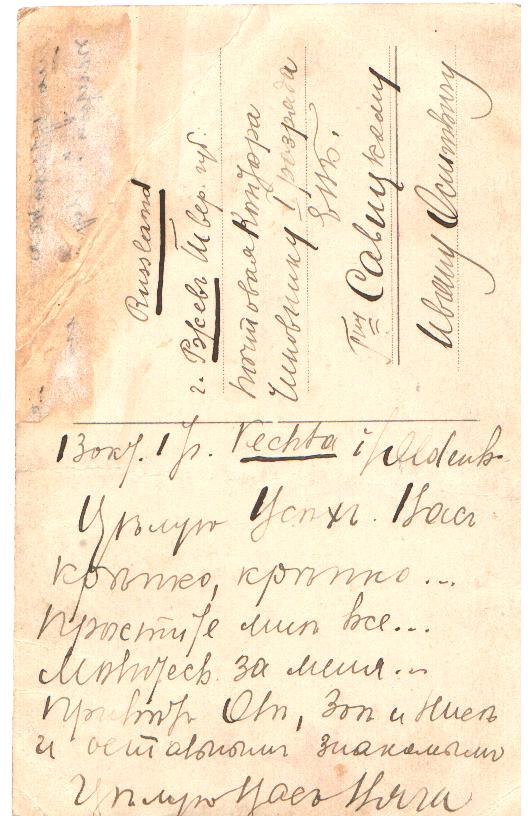 Russland
г. Ржевъ Твер. губ.
почтовая контора
Чиновнику I разряда
Гну Савицкому
Ивану Осиповичу
Vechta i/Oldenb.
Цѣлую Васъ
крѣпко, крѣпко...
Простите мнѣ все...
Молитесь за меня...
Привѣтъ Олѣ, Зоѣ и
и остальнымъ знакомымъ
Цѣлую Васъ